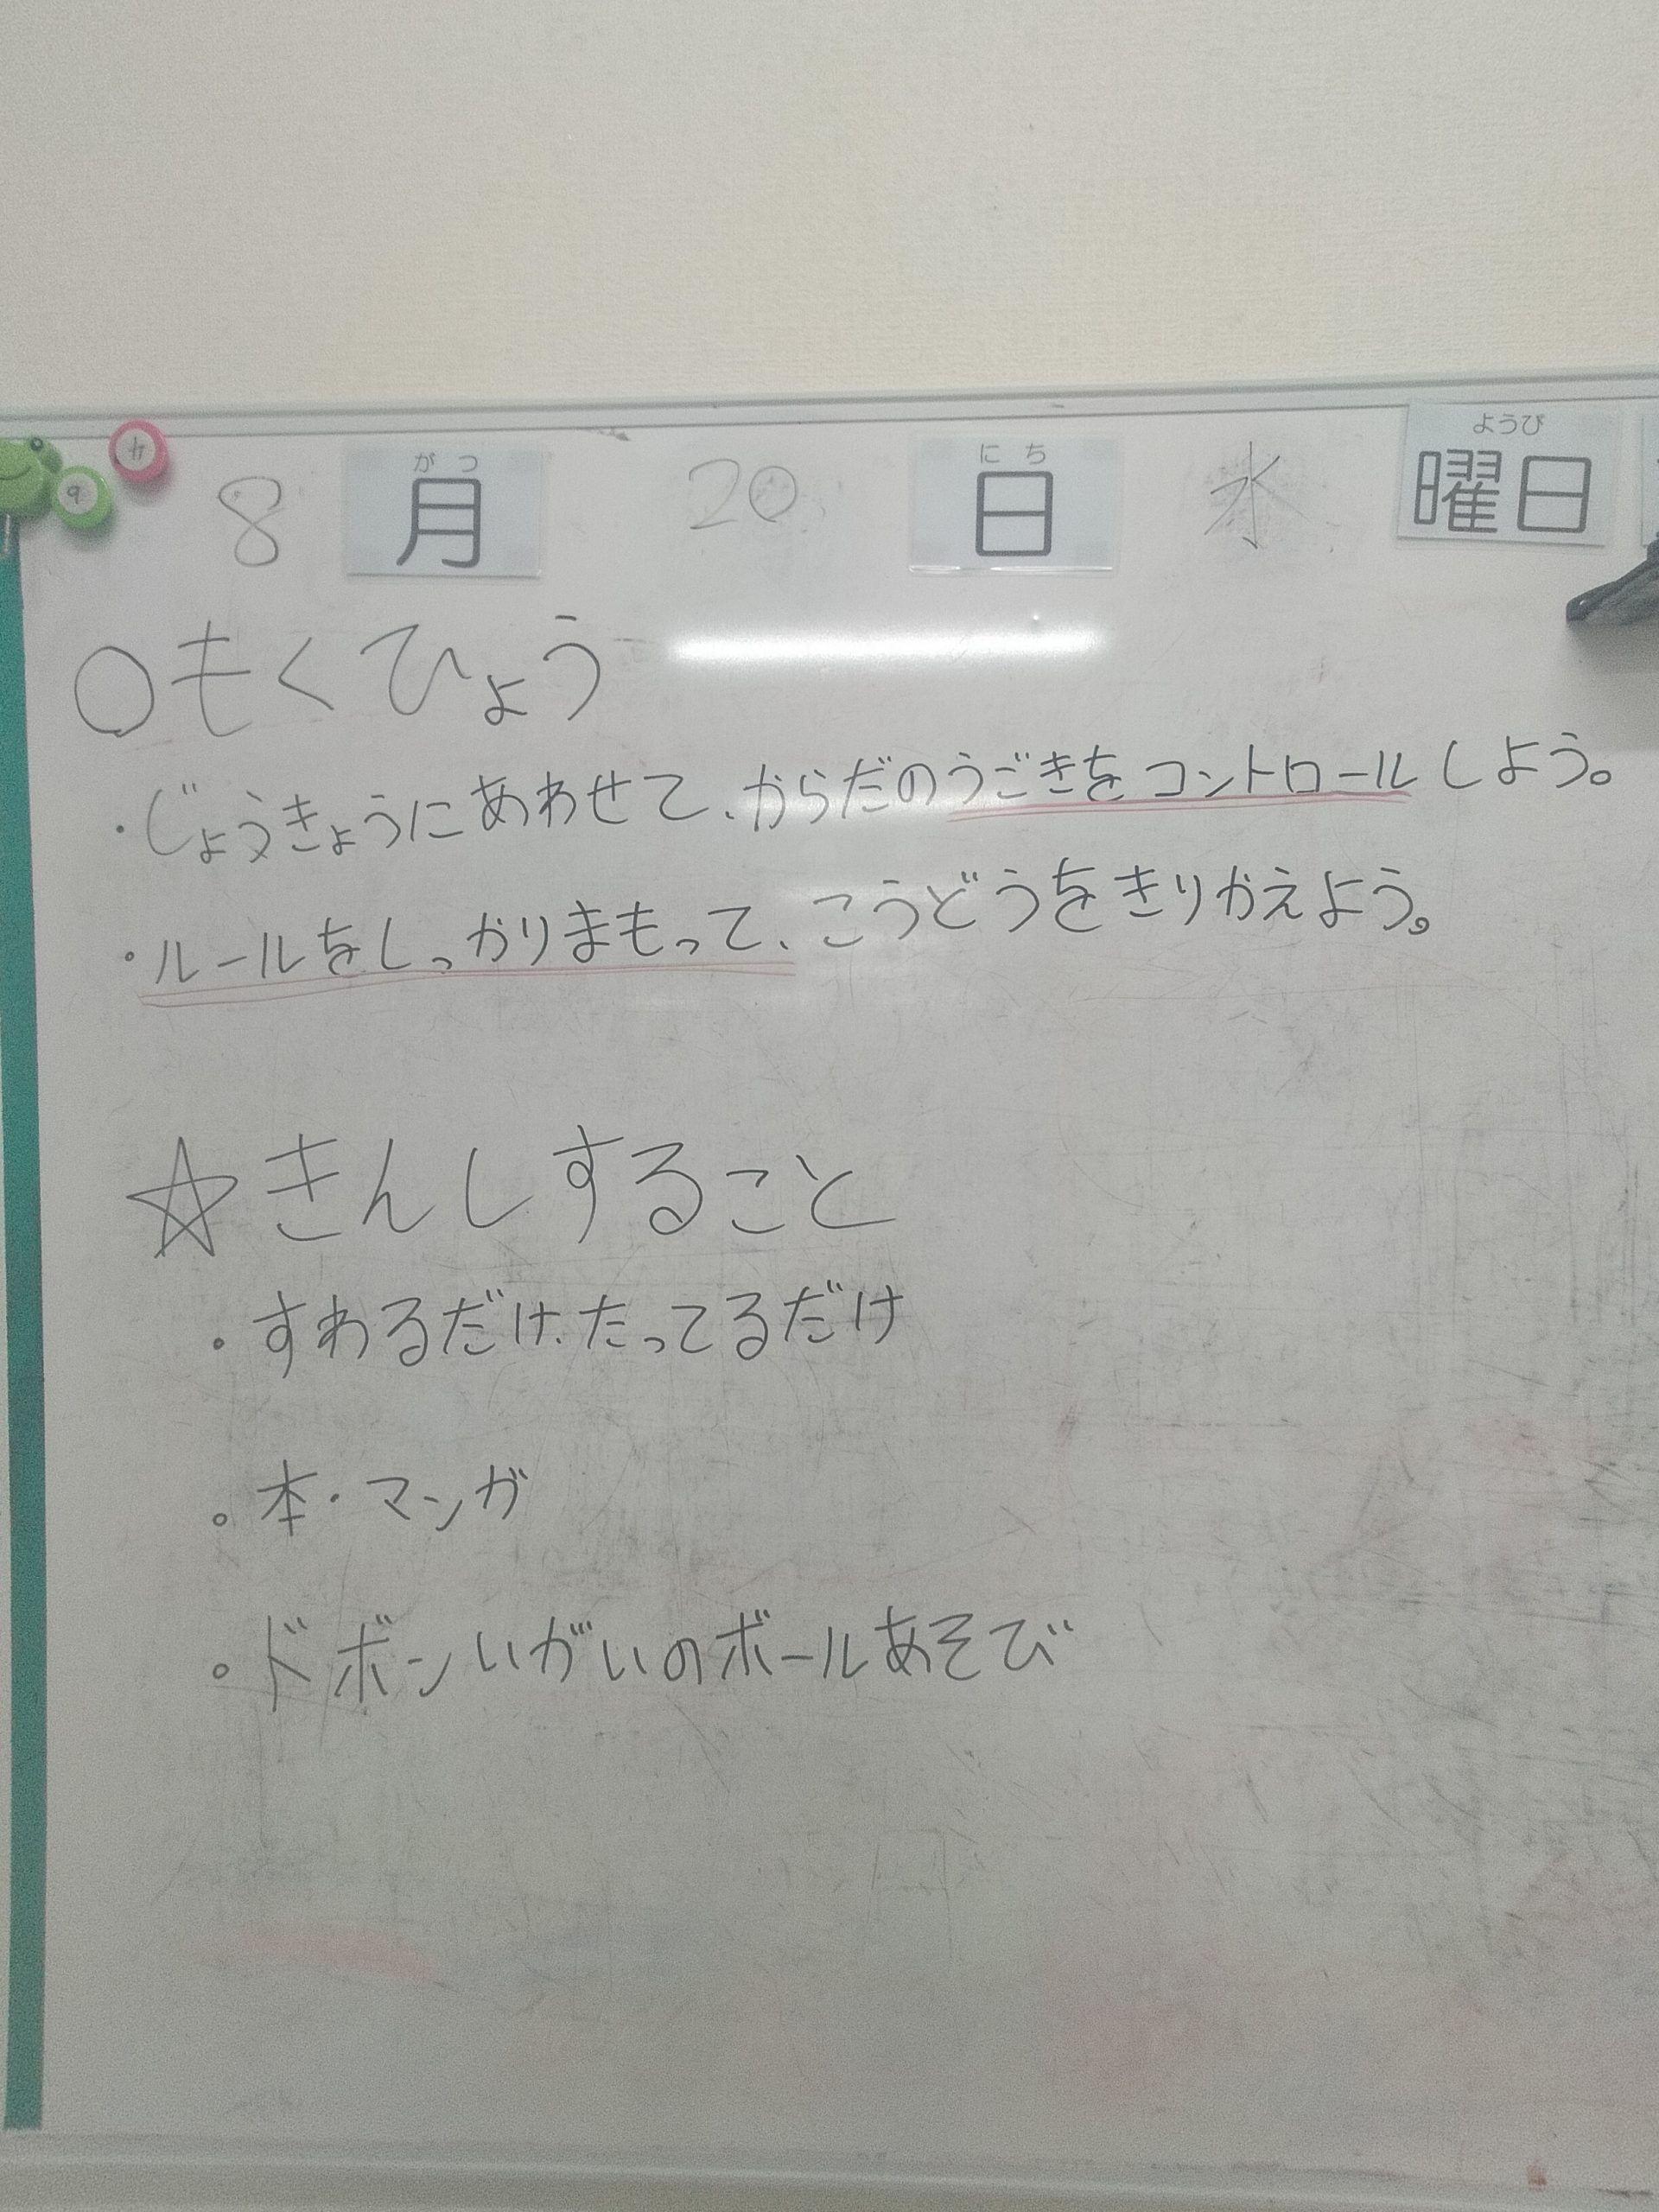 8月 20日 水曜日
がつ にち ようび
○もくひょう
・じょうきょうにあわせて、からだのうごきをコントロールしよう。
・ルールをしっかりまもって、こうどうをきりかえよう。
☆きんしすること
・すわるだけ、たってるだけ
・本・マンガ
・ドボンいがいのボールあそび